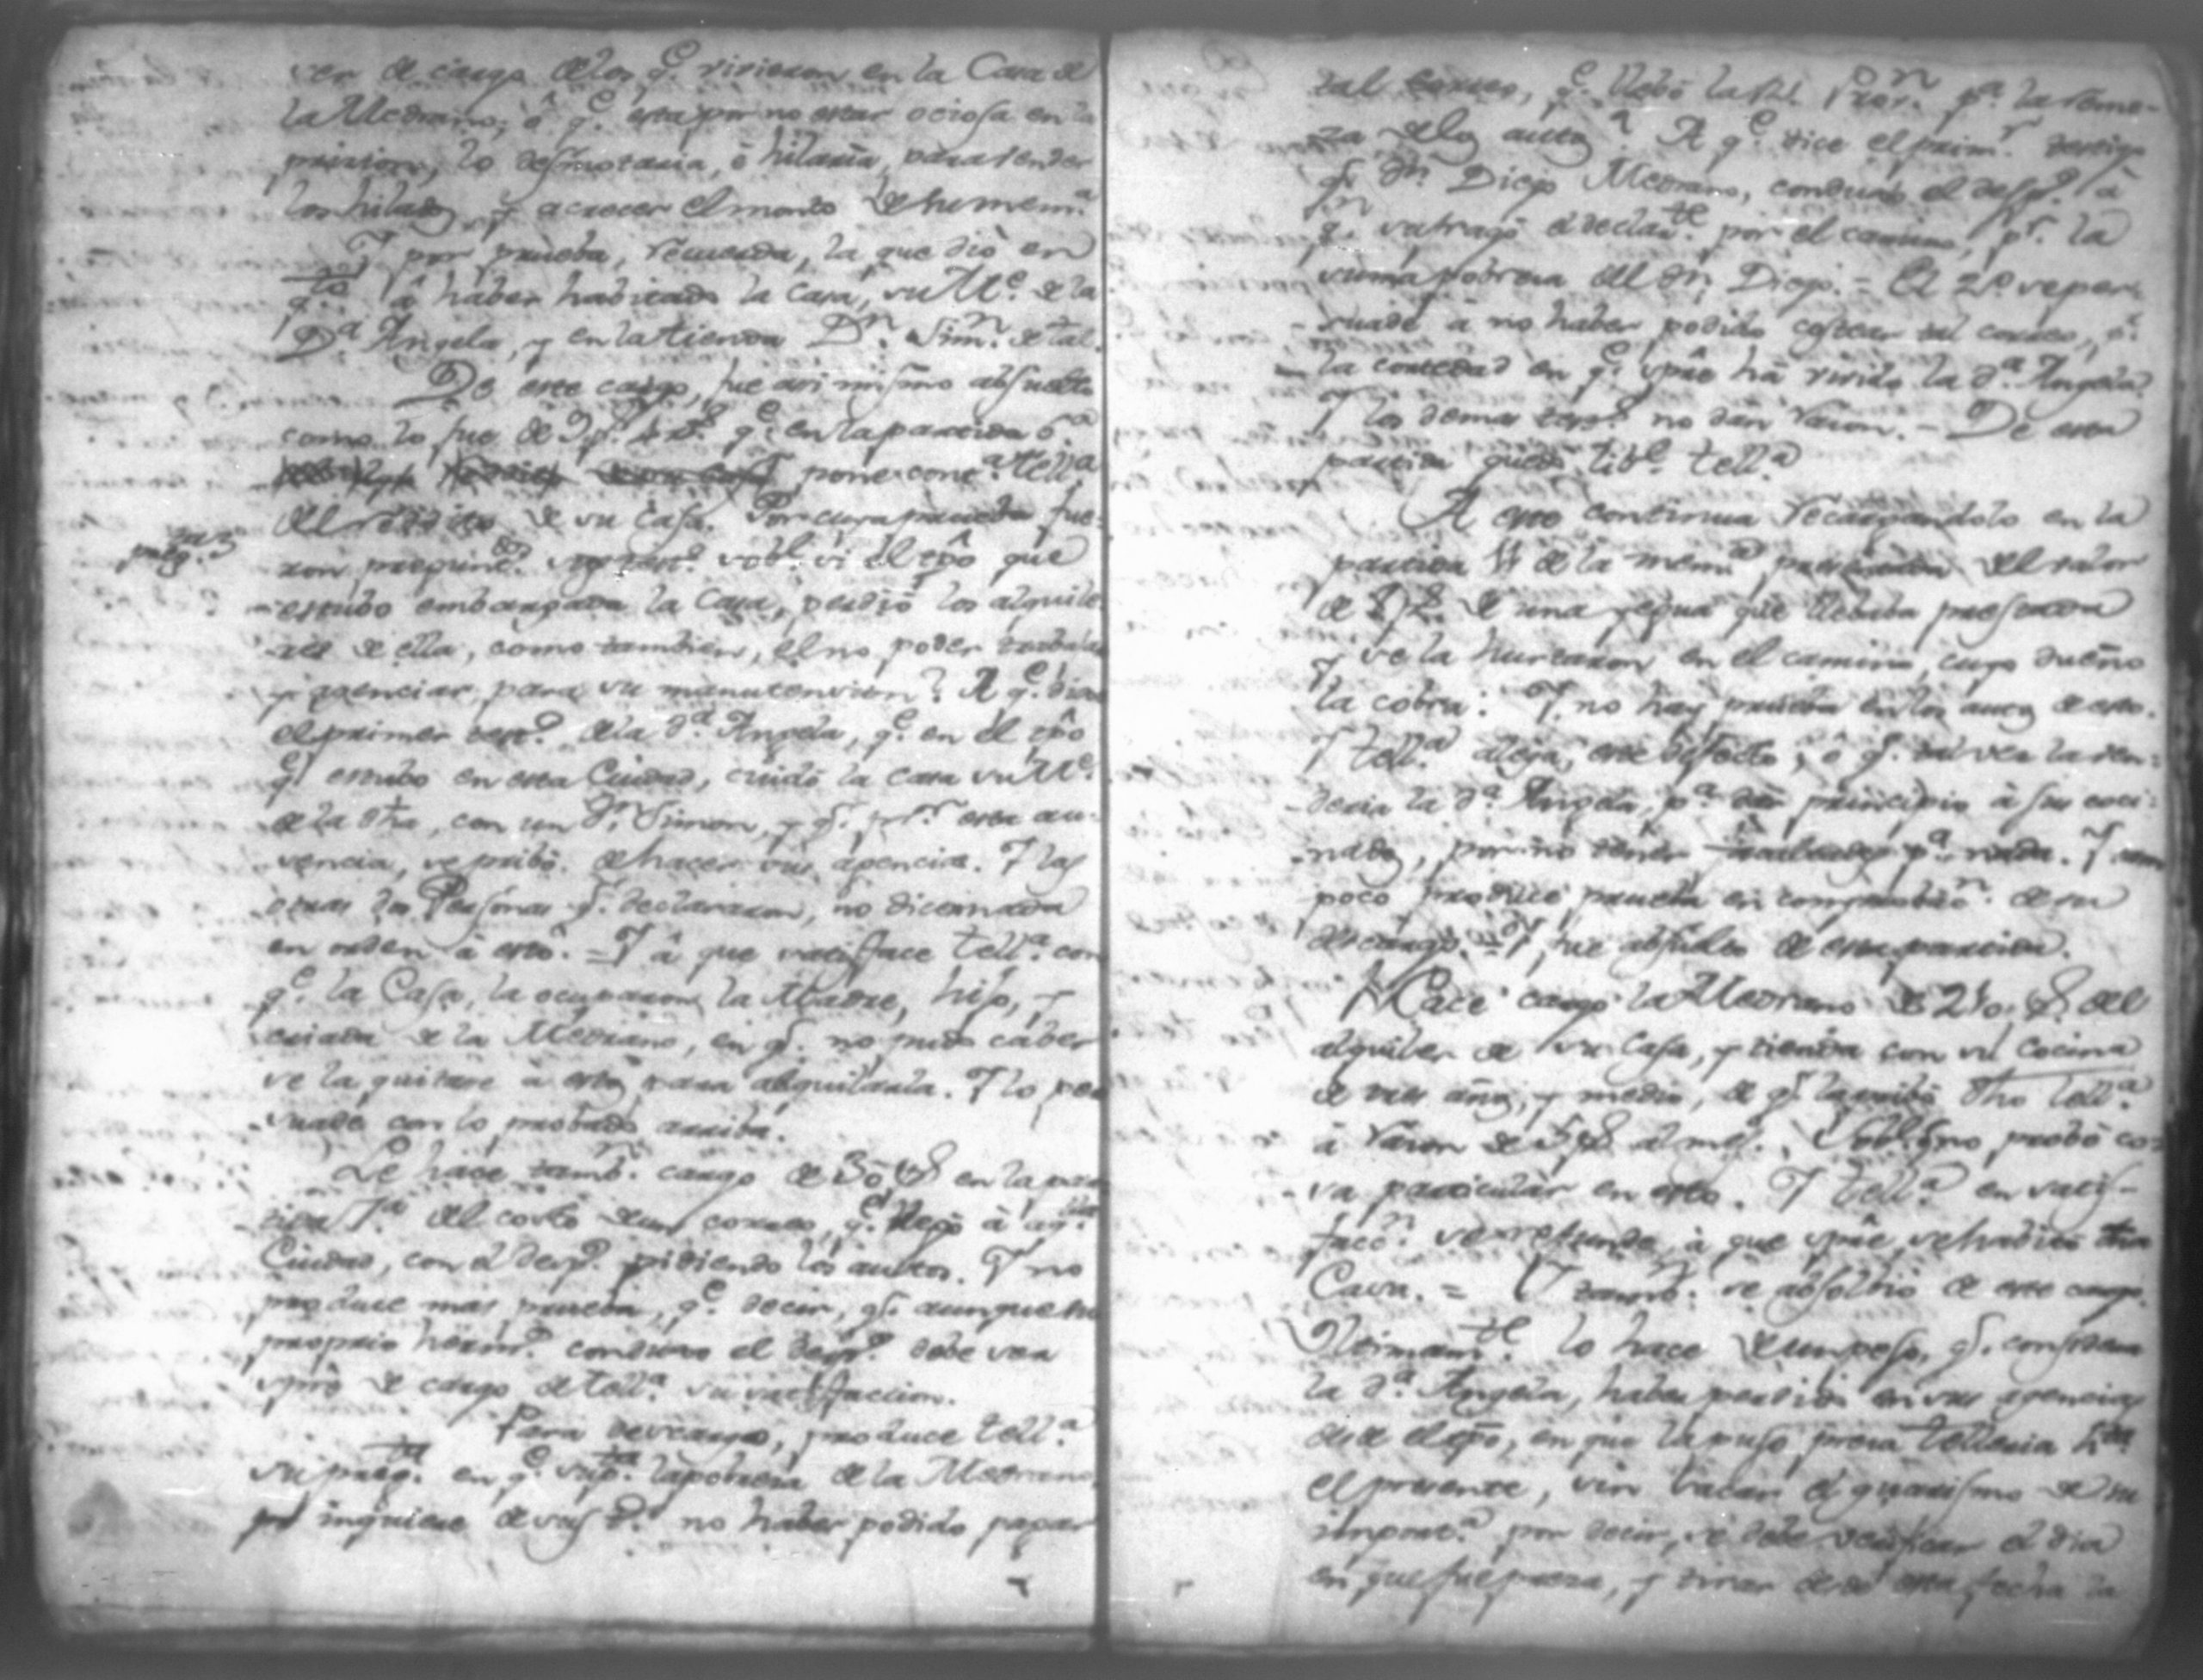 ver de cargo delos q.e vivieron en la Casa de
la Medrano; ô q.e esta por no estar ociosa en la
pricion, lo desmotaria, ô hilaria, para vender
los hilados, y acrecer el monto de su mem.a
Y por prueba, recuerda, la que dió en
q.to â haber habitado la casa, su M.e de la
D.a Angela, y en la tienda D.n Sim.n de tal.
De este cargo, fue asi mismo absuelto
como lo fue de q.e en la partida 6.a
pone contra Tell.a
del rédito de su casa. Por cuya prueba fue-
preg.tas
ron pregunt.dos sus test.s sobre si el tpô que
estubo embargada la Casa, perdió los alquile-
res de ella, como tambien, el no poder trabajar
y agenciar, para su manutencion? A q.e dice
el primer test.o dela d.a Angela, q.e en el tpô
q.e estubo en esta Ciudad, cuidó la casa su M.e
de la dha, con un d.n Simon, y q.e p.r esta au-
sencia, se pribó de hacer sus agencias. Y las
otras dos Personas q.e declararon, no dicen nada
en orden â esto. = Y â que satisface Tell.a con
q.e la Casa, la ocuparon la Madre, hijo, y
criada de la Medrano, en q.e no pudo caber
se la quitase â estos para alquilarla. Y lo per-
suade con lo probado arriba.
Le hace tamb.n cargo de 30 p.s en la par-
tida 7.a del costo de un correo, q.e llegó â aq.lla
Ciudad, con el desp.o pidiendo los autos. Y no
produce mas prueba, q.e decir, q.e aunque su
proprio herm.o condujo el desp.o debe ser
spre de cargo de Tell.a su satisfaccion.
Para descargo, produce Tell.a
su preg.ta en q.e sup.ta la pobreza de la Medrano,
inquiere de sus t.s no haber podido pagar
tal correo, q.e llebó la R.l Prov.n p.a la reme-
za de los autos? A q.e dice el prim.r testigo
q.e d.n Diego Medrano, condujo el desp.o â
q.n sufragó el declar.te por el camino, p.r la
suma pobreza del d.n Diego. = El 2.o se per-
suade â no haber podido costear tal correo, p.r
la cortedad en q.e spre hâ vivido la d.a Angela.
Y los demas test.s no dan razon. - De esta
partida quedó lib.e Tell.a
A esto continua recargandolo en la
partida 11 de la mem.a del valor
de 8 p.s de una yegua que llebaba prestada
y se la hurtaron en el camino, cuyo dueño
la cobra: Y no hay prueba en los autos de esto.
Y Tell.a alega, este defecto; ô q.e tal vez la ven-
deria la d.a Angela, p.a dar principio â sus coci-
nados, por no tener facultades p.a nada. Y tam-
poco produce prueba en comprobac.n de su
descargo. = Y fue absuelto de esta partida.
Hace cargo la Medrano de 210 p.s del
alquiler de su Casa, y tienda con su cocina
de tres años, y medio, de q.e la pribó dho Tell.a
â razon de 5 p.s al mes. Sob.e q.e no probó co-
sa particular en esto. Y Tell.a en satis-
facc.n se refunde, â que spre se habitó dha
Casa. = Y tamb.n se absolbió de este cargo.
Ultimam.te lo hace de un peso, q.e considera
la d.a Angela, haber perdido en sus agencias
desde el tpô, en que la puso presa Telleria h.ta
el presente, sin sacar el guarismo de su
import.a por decir, se debe verificar el dia
en que fue presa, y tirar desde esta fecha la